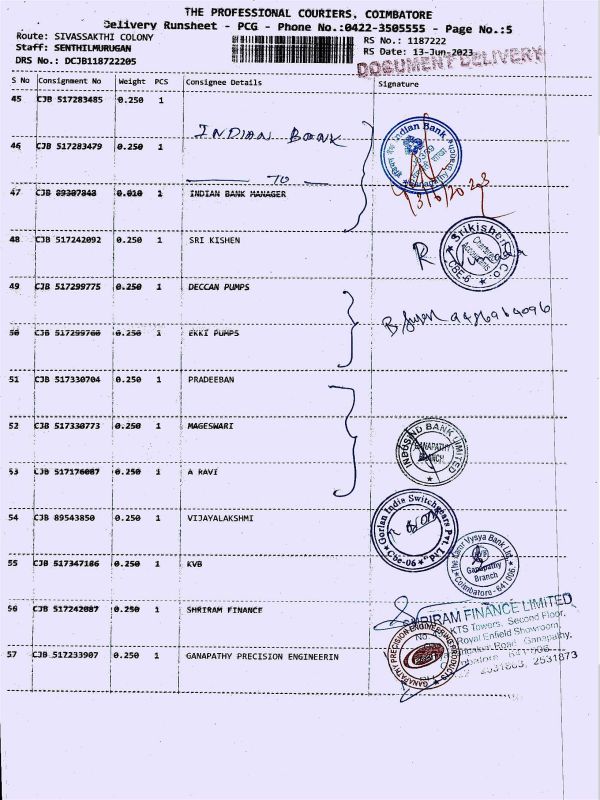 THE PROFESSIONAL COURIERS, COIMBATORE
Delivery Runsheet - PCG - Phone No.:0422-3505555 - Page No.:5
Route: SIVASSAKTHI COLONY RS No.: 1187222
Staff: SENTHILMURUGAN RS Date: 13-Jun-2023
DRS No.: DCJB118722205 DOCUMENT DELIVERY
S No Consignment No Weight PCS Consignee Details Signature
45 CJB 517283485 0.250 1
INDIAN BANK
46 CJB 517283479 0.250 1
TO
47 CJB 89307848 0.010 1 INDIAN BANK MANAGER
Indian Bank
Ganapathy Branch
13/6/2023
48 CJB 517242092 0.250 1 SRI KISHEN
Srikishen & Co.
Chartered Accountants
CBE-6
49 CJB 517299775 0.250 1 DECCAN PUMPS
50 CJB 517299760 0.250 1 EKKI PUMPS
51 CJB 517330704 0.250 1 PRADEEBAN
52 CJB 517330773 0.250 1 MAGESWARI
INDUSIND BANK LIMITED
GANAPATHY BRANCH
53 CJB 517176087 0.250 1 A RAVI
54 CJB 89543850 0.250 1 VIJAYALAKSHMI
Gorlan India Switchgears Pvt Ltd
Cbe-06
55 CJB 517347186 0.250 1 KVB
The Karur Vysya Bank Ltd.
Ganapathy Branch
Coimbatore - 641 006.
56 CJB 517242087 0.250 1 SHRIRAM FINANCE
SHRIRAM FINANCE LIMITED
KTS Towers, Second Floor,
Royal Enfield Showroom,
Road, Ganapathy,
Coimbatore 641 006.
2531863, 2531873
57 CJB 517233907 0.250 1 GANAPATHY PRECISION ENGINEERIN
GANAPATHY PRECISION ENGINEERING PRODUCTS